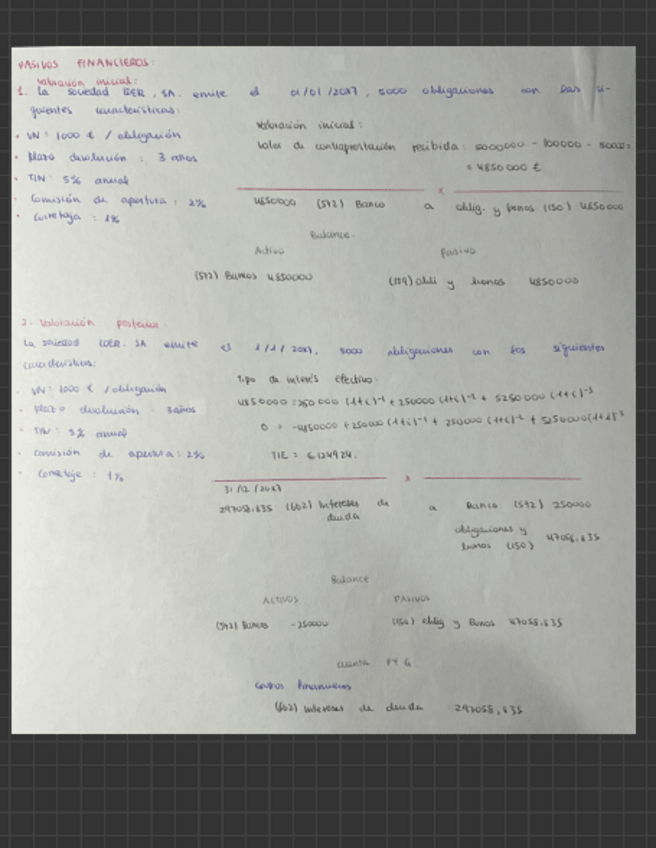 PASIVOS FINANCIEROS:
Valoración inicial:
1. La sociedad IDER, SA. emite el 01/01/2017, 5000 obligaciones con las si-
guientes características:
• VN: 1000 € / obligación
• Plazo devolución : 3 años
• TIN: 5% anual
• Comisión de apertura: 2%
• Corretaje : 1%
Valoración inicial:
Valor de contraprestación recibida: 5000000 - 100000 - 50000=
= 4850000 €
x
4850000 (572) Banco a oblig. y bonos (150) 4850000
Balance.
Activo Pasivo
(572) Bancos 4850000 obli y bonos 4850000
2. Valoración posterior
La sociedad IDER. SA emite el 1/1/2017, 5000 obligaciones con las siguientes
características:
• VN: 1000 € / obligación
• Plazo devolución : 3 años
• TIN: 5% anual
• Comisión de apertura: 2%
• Corretaje : 1%
Tipo de interés efectivo:
4850000 = 250000 (1+i)⁻¹ + 250000 (1+i)⁻² + 5250000 (1+i)⁻³
0 = -4850000 + 250000 (1+i)⁻¹ + 250000 (1+i)⁻² + 5250000(1+i)⁻³
TIE = 6,124924.
x
31/12/2017
297058,835 (662) Intereses de deuda a Banco (572) 250000
obligaciones y bonos (150) 47058,835
Balance
ACTIVOS PASIVOS
(572) Bancos -250000 (150) oblig y Bonos 47058,835
cuenta PYG
Gastos financieros
(662) Intereses de deuda 297058,835